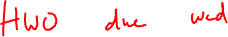 HWO due wed